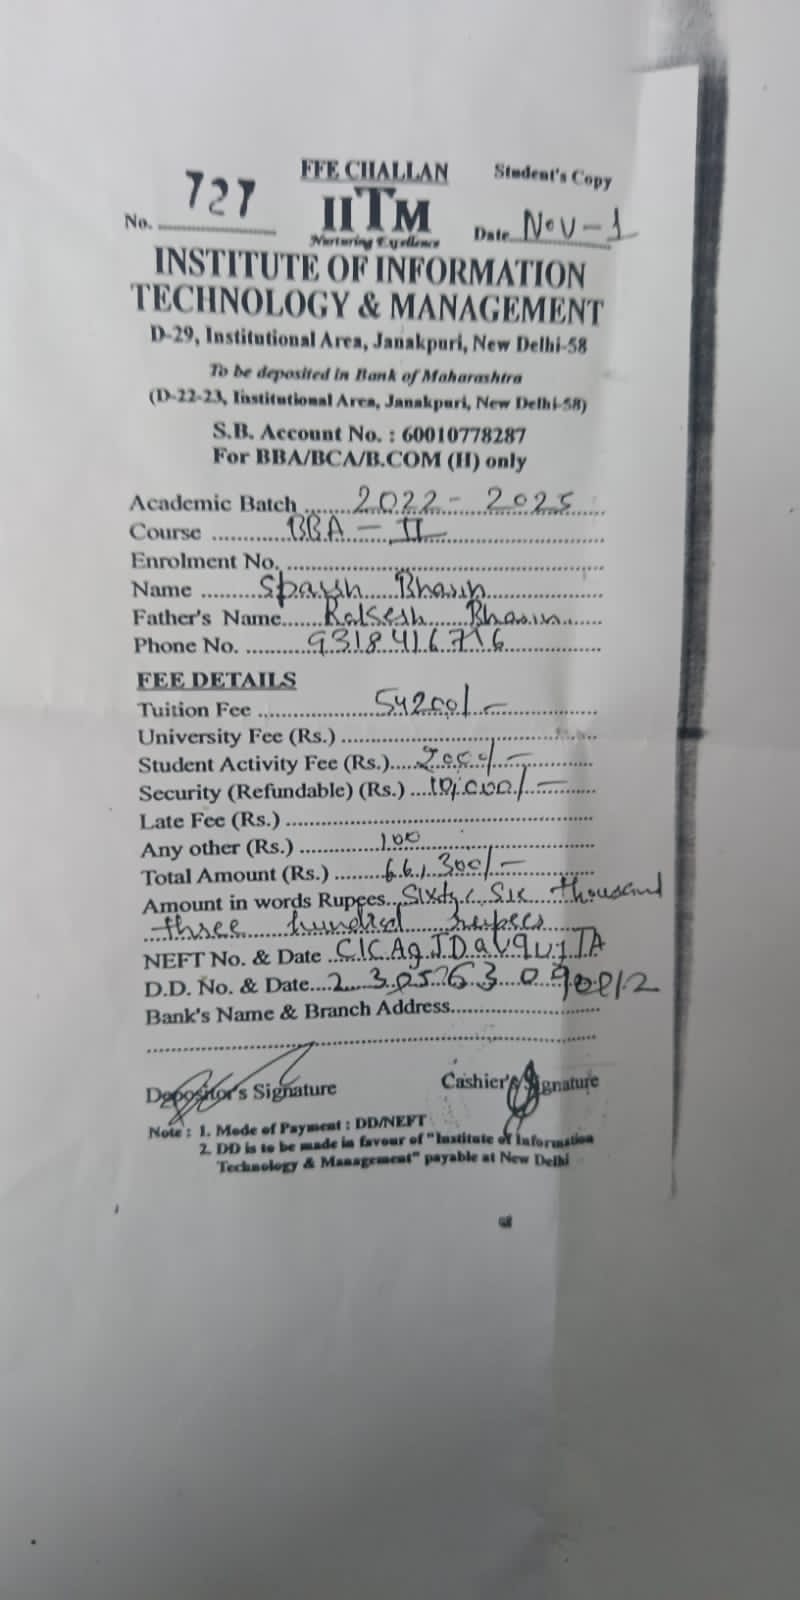 FEE CHALLAN
Student's Copy
No. 727
IITM
Nurturing Excellence
Date Nov-1
INSTITUTE OF INFORMATION
TECHNOLOGY & MANAGEMENT
D-29, Institutional Area, Janakpuri, New Delhi-58
To be deposited in Bank of Maharashtra
(D-22-23, Institutional Area, Janakpuri, New Delhi-58)
S.B. Account No. : 60010778287
For BBA/BCA/B.COM (II) only
Academic Batch 2022-2025
Course BBA-II
Enrolment No.
Name Sparsh Bhasin
Father's Name Rakesh Bhasin
Phone No. 9318416716
FEE DETAILS
Tuition Fee 54200/-
University Fee (Rs.)
Student Activity Fee (Rs.) 2000/-
Security (Refundable) (Rs.) 10,000/-
Late Fee (Rs.)
Any other (Rs.) 100
Total Amount (Rs.) 66,300/-
Amount in words Rupees Sixty Six thousand
three hundred rupees
NEFT No. & Date
D.D. No. & Date
Bank's Name & Branch Address
Depositor's Signature
Cashier's Signature
Note : 1. Mode of Payment : DD/NEFT
2. DD is to be made in favour of "Institute of Information
Technology & Management" payable at New Delhi